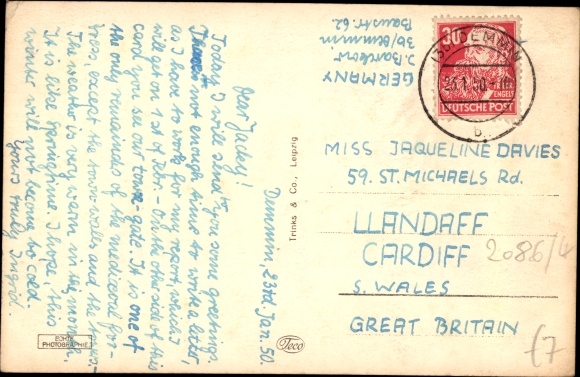 Demmin, 23rd Jan. 50.
Dear Jacky!
Today I will send to you some greetings
I haven't enough time to write a letter,
as I have to work for my report, which I
will get on 1st of Febr. - On the other side of this
card you see our town gate. It is one of
the only remainders of the mediaeval for-
tress, except the town-walls and the towers.
The weather is very warm in the moment,
It is like Springtime. I hope, this
winter will not become to cold.
Yours truly, Ingrid.
ECHTE
PHOTOGRAPHIE
Trinks & Co., Leipzig
Teco
GERMANY
J. Barckow
3b/Demmin
Baustr. 62
30
ENGELS
DEUTSCHE POST
DEMMIN
b
MISS JAQUELINE DAVIES
59. ST. MICHAELS Rd.
LLANDAFF
CARDIFF
S. WALES
GREAT BRITAIN
2086/4
£7